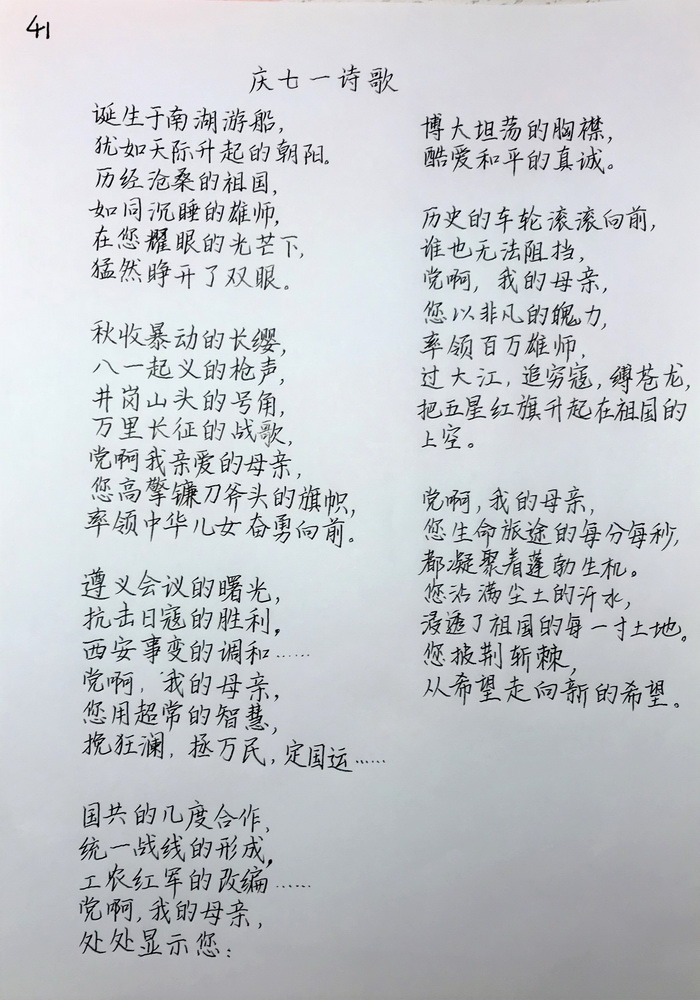 41
庆七一诗歌
诞生于南湖游船,
犹如天际升起的朝阳。
历经沧桑的祖国,
如同沉睡的雄师,
在您耀眼的光芒下,
猛然睁开了双眼。
秋收暴动的长缨,
八一起义的枪声,
井岗山头的号角,
万里长征的战歌,
党啊我亲爱的母亲,
您高擎镰刀斧头的旗帜,
率领中华儿女奋勇向前。
遵义会议的曙光,
抗击日寇的胜利,
西安事变的调和……
党啊,我的母亲,
您用超常的智慧,
挽狂澜,拯万民,定国运……
国共的几度合作,
统一战线的形成,
工农红军的改编……
党啊,我的母亲,
处处显示您:
博大坦荡的胸襟,
酷爱和平的真诚。
历史的车轮滚滚向前,
谁也无法阻挡,
党啊,我的母亲,
您以非凡的魄力,
率领百万雄师,
过大江,追穷寇,缚苍龙,
把五星红旗升起在祖国的
上空。
党啊,我的母亲,
您生命旅途的每分每秒,
都凝聚着蓬勃生机。
您沾满尘土的汗水,
浸透了祖国的每一寸土地。
您披荆斩棘,
从希望走向新的希望。